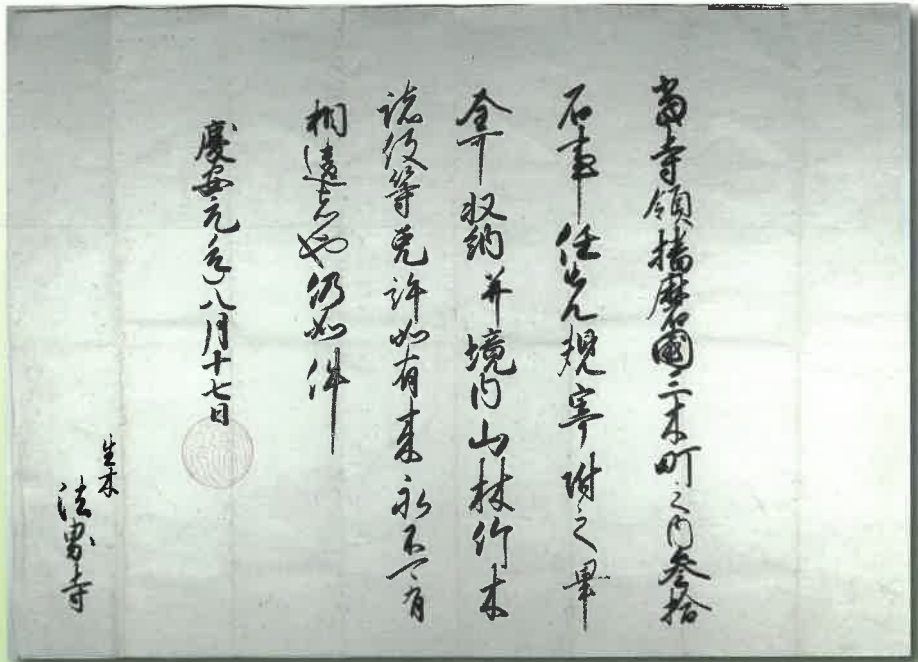 當寺領播磨國三木町之内叄拾
石事任先規寄附之畢
全可収納并境内山林竹木
諸役等免許如有来永不可有
相違者也仍如件
慶安元年八月十七日
生木
法界寺